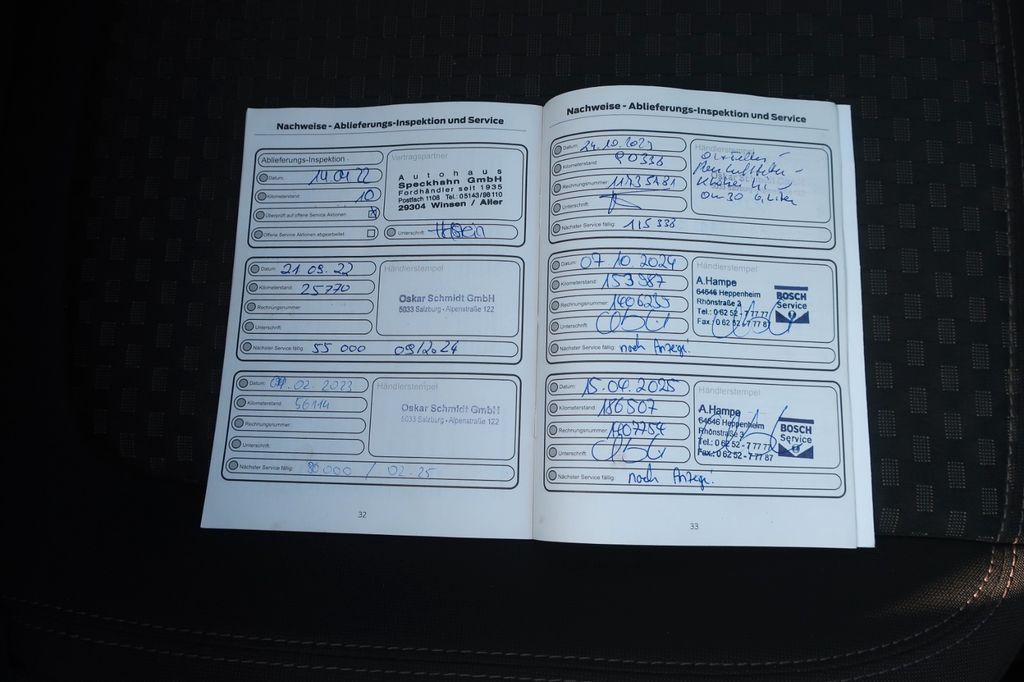 Nachweise - Ablieferungs-Inspektion und Service
Ablieferungs-Inspektion
Datum: 14 01 22
Kilometerstand: 10
Überprüft auf offene Service Aktionen
Offene Service Aktionen abgearbeitet
Vertragspartner
Autohaus
Speckhahn GmbH
Fordhändler seit 1935
Postfach 1108 Tel. 05143/98110
29304 Winsen / Aller
Unterschrift:
Datum: 21 09. 22
Kilometerstand: 25770
Rechnungsnummer:
Unterschrift:
Nächster Service fällig: 55 000 09/2024
Händlerstempel
Oskar Schmidt GmbH
5033 Salzburg - Alpenstraße 122
Datum: 02. 2023
Kilometerstand: 56114
Rechnungsnummer:
Unterschrift:
Nächster Service fällig: 80 000 / 02. 25
Händlerstempel
Oskar Schmidt GmbH
5033 Salzburg - Alpenstraße 122
32
Nachweise - Ablieferungs-Inspektion und Service
Datum: 24.10.2023
Kilometerstand: 90338
Rechnungsnummer:
Unterschrift:
Nächster Service fällig: 115 338
Händlerstempel
0w30 6 Liter
Datum: 07 10. 2024
Kilometerstand: 153987
Rechnungsnummer: 1406235
Unterschrift:
Nächster Service fällig: nach Anzeige!
Händlerstempel
A.Hampe
64646 Heppenheim
Rhönstraße 2
Tel.: 0 62 52 - 7 77 77
Fax.: 0 62 52 - 7 77 87
BOSCH
Service
Datum: 15.04.2025
Kilometerstand: 186507
Rechnungsnummer: 1407754
Unterschrift:
Nächster Service fällig: nach Anzeige!
Händlerstempel
A.Hampe
64646 Heppenheim
Rhönstraße 2
Tel.: 0 62 52 - 7 77 77
Fax.: 0 62 52 - 7 77 87
BOSCH
Service
33